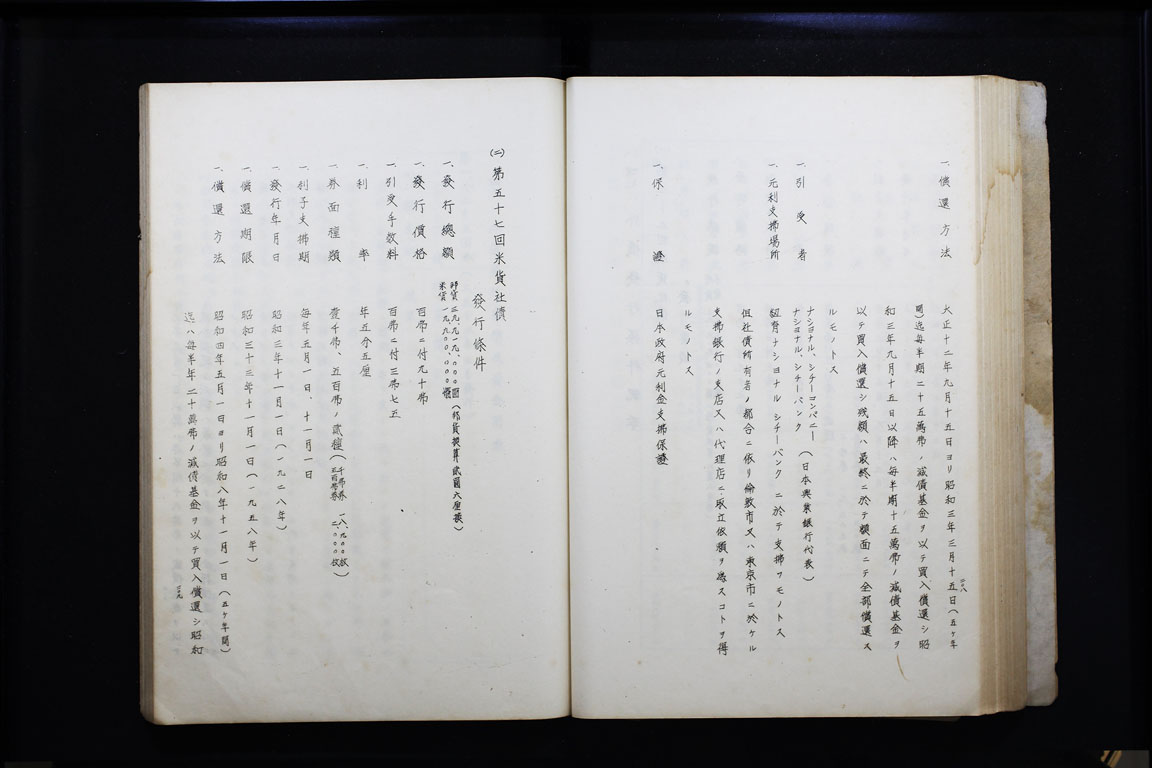 一、償還方法　大正十二年九月十五日ヨリ昭和三年三月十五日(五ヶ年
間)迄每半期二十五萬弗ノ減債基金ヲ以テ買入償還シ昭
和三年九月十五日以降ハ每半期十五萬弗ノ減債基金ヲ
以テ買入償還シ残額ハ最終ニ於テ額面ニテ全部償還ス
ルモノトス
一、引受者　ナショナル、シチーコンパニー
ナショナル、シチーバンク
(日本興業銀行代表)
一、元利支拂場所　紐育ナショナルシチーバンクニ於テ支拂フモノトス
但社債所有者ノ都合ニ依リ倫敦市又ハ東京市ニ於ケル
支拂銀行ノ支店又ハ代理店ニ取立依賴ヲ為スコトヲ得
ルモノトス
一、保證　日本政府元利金支拂保證
二〇八
(二)第五十七回米貨社債
發行條件
一、發行總額　邦貨三九、九一九、〇〇〇圓
米貨一九、九〇〇、〇〇〇弗
(邦貨換算貳圓六厘換)
一、發行價格　百弗ニ付九十弗
一、引受手數料　百弗ニ付三弗七五
一、利率　年五分五厘
一、券面種類　壹千弗、五百弗ノ貳種(千弗券 一八、九〇〇枚
五百弗券 二、〇〇〇枚)
一、利子支拂期　每年五月一日、十一月一日
一、發行年月日　昭和三年十一月一日(一九二八年)
一、償還期限　昭和三十三年十一月一日(一九五八年)
一、償還方法　昭和四年五月一日ヨリ昭和八年十一月一日(五ヶ年間)
迄ハ每半年二十萬弗ノ減債基金ヲ以テ買入償還シ昭和
二〇九